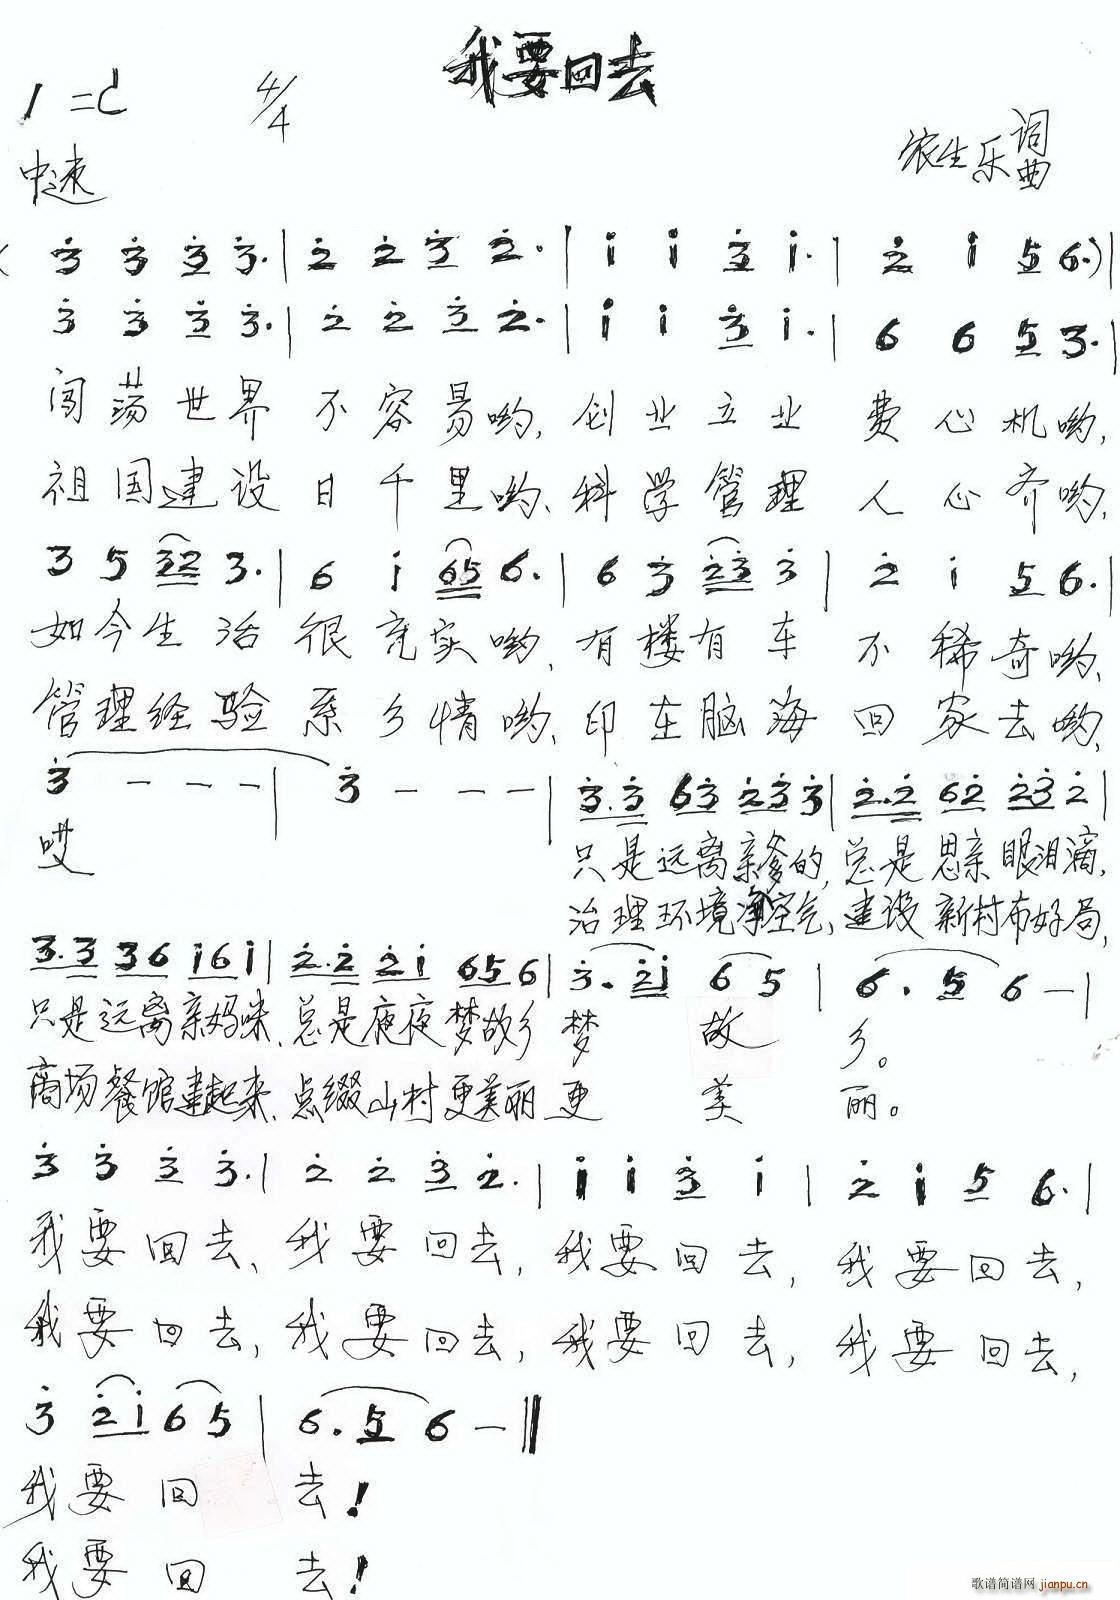 我要回去
1=C 4/4
农生乐 词曲
中速
(3̇ 3̇ 3̇ 3̇. | 2̇ 2̇ 3̇ 2̇. | 1̇ 1̇ 3̇ 1̇. | 2̇ 1̇ 5 6.) |
3̇ 3̇ 3̇ 3̇. | 2̇ 2̇ 3̇ 2̇. | 1̇ 1̇ 3̇ 1̇. | 6 6 5 3. |
闯荡世界 不容易哟,创业立业 费心机哟,
祖国建设 日千里哟、科学管理 人心齐哟,
3 5 32 3. | 6 1̇ 65 6. | 6 3̇ 2̇3̇ 3̇ | 2̇ 1̇ 5 6. |
如今生活 很充实哟,有楼有车 不稀奇哟、
管理经验 系乡情哟、印在脑海 回家去哟,
3̇ - - - | 3̇ - - - | 3̇.3̇ 63̇ 2̇3̇3̇ | 2̇.2̇ 62̇ 2̇3̇2̇ |
哎 只是远离亲爹的,总是思亲眼泪滴,
治理环境净空气,建设新村布好局,
3̇.3̇ 3̇6 1̇61̇ | 2̇.2̇ 2̇1̇ 656 | 3̇. 2̇1̇ 6 5 | 6. 5 6 - |
只是远离亲妈咪、总是夜夜梦故乡 梦 故 乡。
商场餐馆建起来、点缀山村更美丽 更 美 丽。
3̇ 3̇ 3̇ 3̇. | 2̇ 2̇ 3̇ 2̇. | 1̇ 1̇ 3̇ 1̇ | 2̇ 1̇ 5 6. |
我要回去、我要回去,我要回去,我要回去,
我要回去,我要回去,我要回去,我要回去,
3̇ 2̇1̇ 6 5 | 6. 5 6 - ‖
我要回 去!
我要回 去!
歌谱简谱网 jianpu.cn